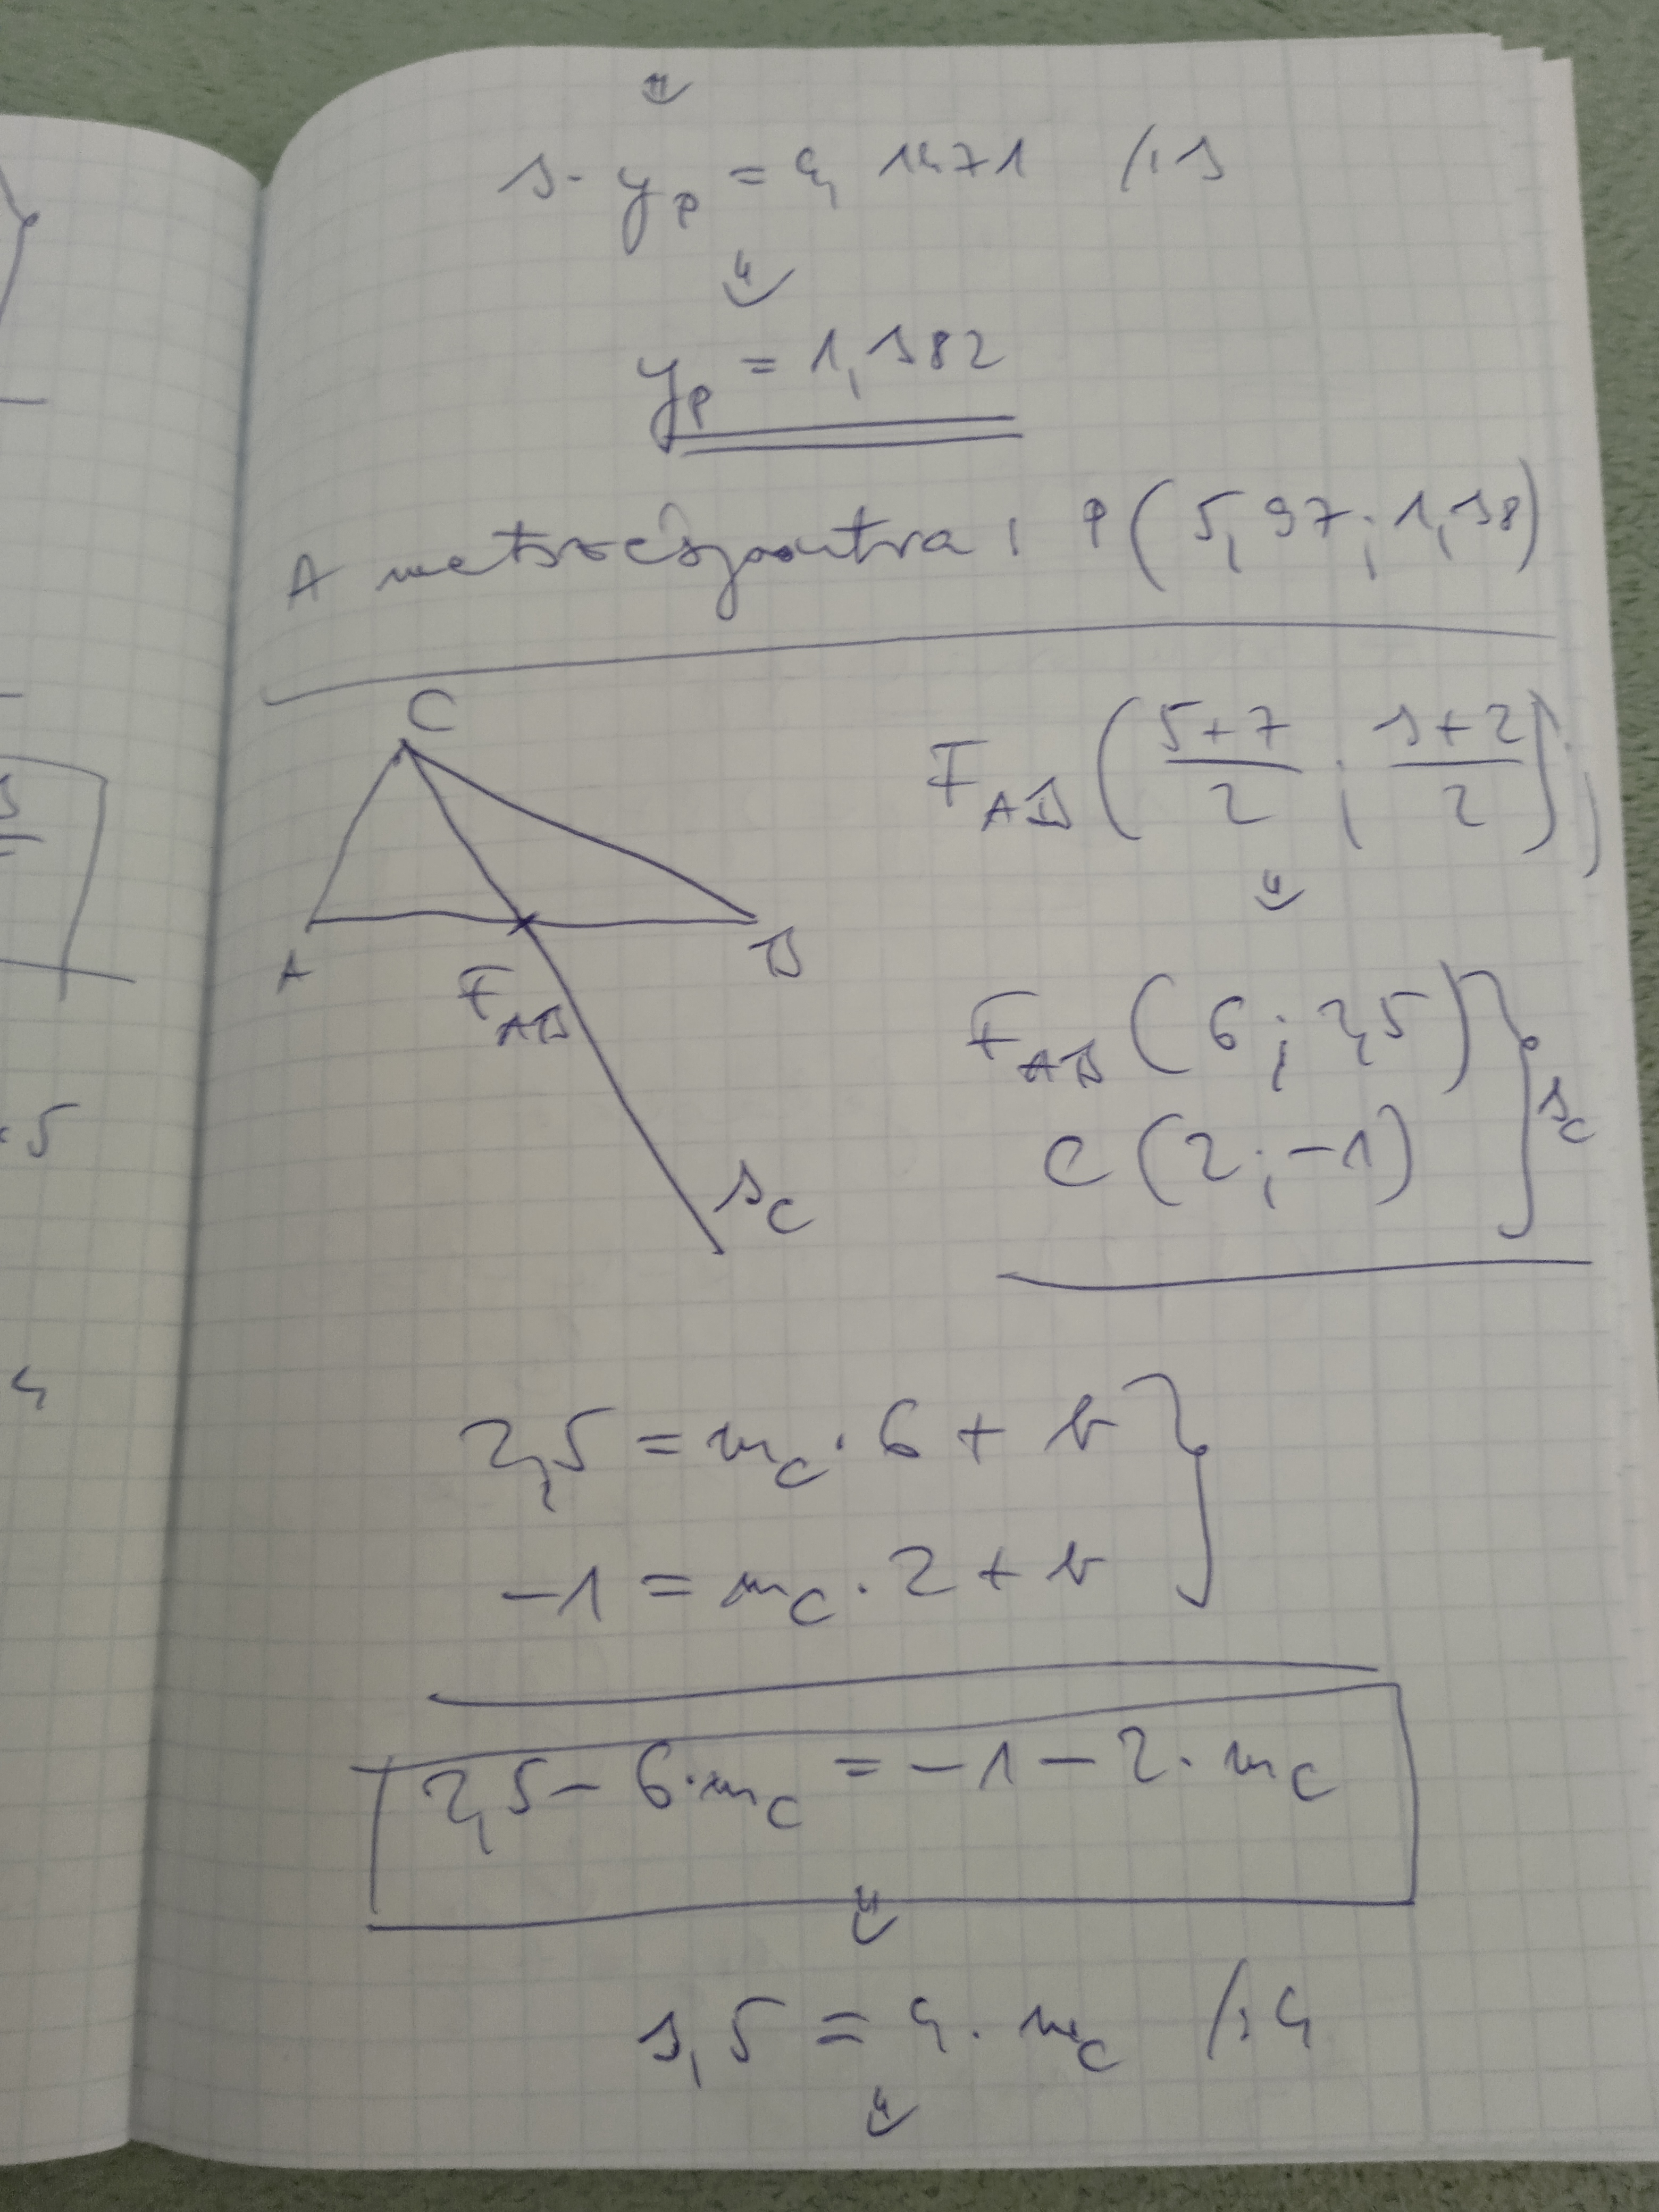 3·y_P = 4,1471 /:3
⇓
y_P = 1,382
A metszéspontra: P(5,97; 1,38)
C
A
B
F_AB
s_C
F_AB((5+7)/2; (3+2)/2);
⇓
F_AB(6; 2,5)
C(2; -1)
s_C
2,5 = m_C·6 + b
-1 = m_C·2 + b
2,5 - 6·m_C = -1 - 2·m_C
⇓
3,5 = 4·m_C /:4
⇓
5
4